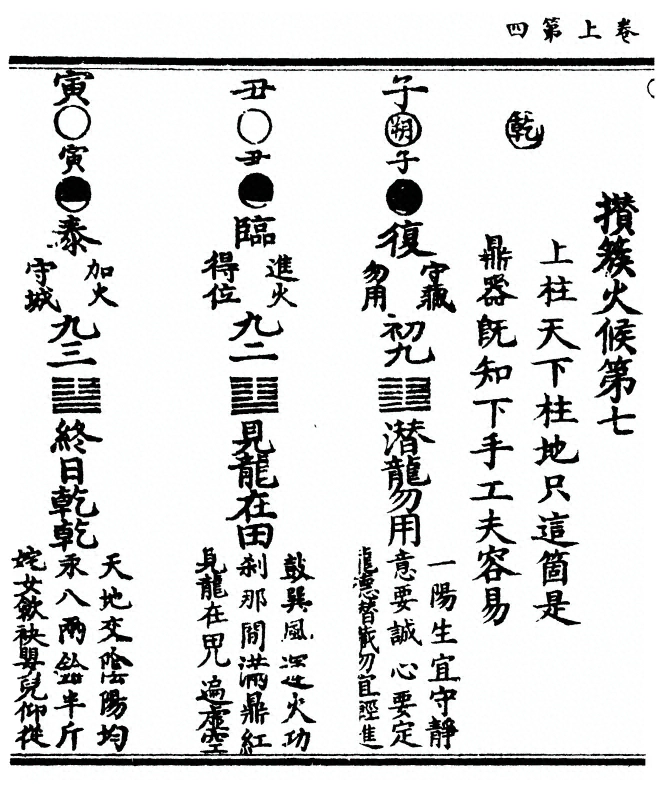 卷上第四
攅簇火候第七
上柱天下柱地只這箇是
鼎器既知下手工夫容易
乾
子
朔
子
復
守藏
勿用
初九
潛龍勿用
一陽生宜守靜
意要誠心要定
龍德潛藏勿宜輕進
丑
丑
臨
進火
得位
九二
見龍在田
鼓巽風運火功
剎那間滿鼎紅
見龍在田遍虛空
寅
寅
泰
加火
守城
九三
終日乾乾
天地交陰陽均
汞八兩鉛半斤
姹女斂袂嬰兒仰從